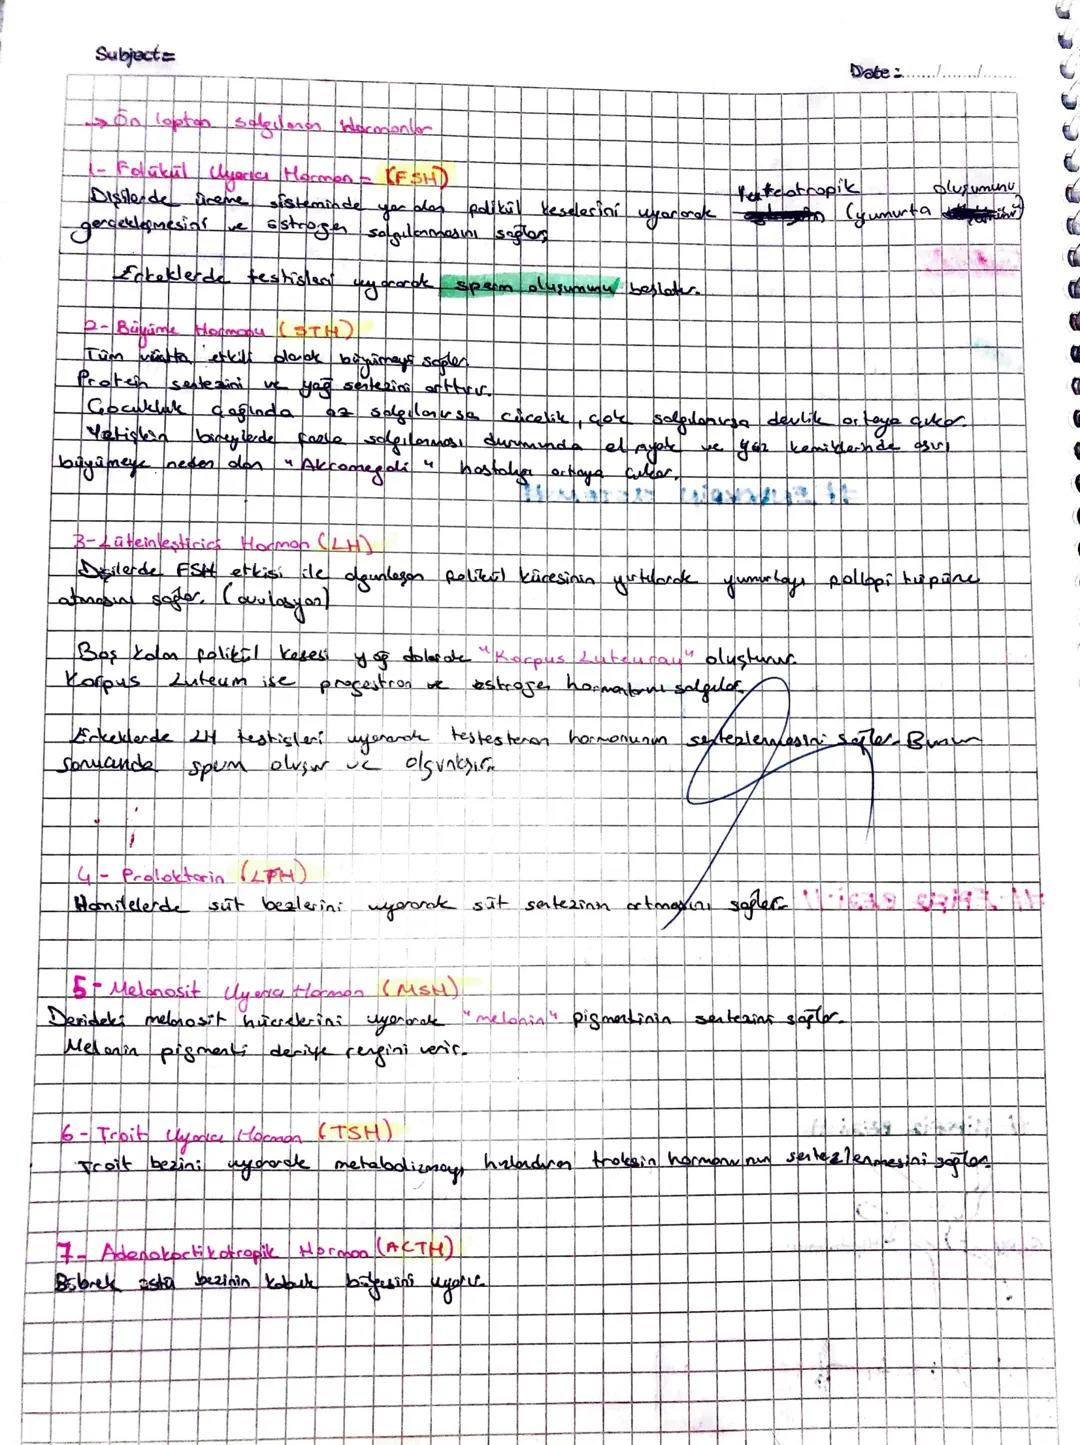 Subject=
Date:....../......./.......
→ Ön loptan salgılanan Hormonlar
1- Folükül Uyarıcı Hormon = (FSH)
Dişilerde üreme sisteminde yer alan polikül keselerini uyararak (yumurta oluşumunu
gerçekleşmesini ve östrogen salgılanmasını sağlar
Erkeklerde testisleri uyararak sperm oluşumunu başlatır.
2- Büyüme Hormonu (STH)
Tüm vücutta etkili olarak büyümeyi sağlar.
Protein sentezini ve yağ sentezini arttırır.
Çocukluk çağında az salgılanırsa cücelik, çok salgılanırsa devlik ortaya çıkar.
Yetişkin bireylerde fazla salgılanması durumunda el ayak ve yüz kemiklerinde aşırı
büyümeye neden olan "Akromegali" hastalığı ortaya çıkar.
3- Lüteinleştirici Hormon (LH)
Dişilerde FSH etkisi ile olgunlaşan polikül küresinin yırtılarak yumurtayı pollopi tüpüne
atmasını sağlar. (ovulasyon)
Boş kalan polikül kesesi yağ dolarak "Korpus Luteuray" oluşturur.
Korpus Luteum ise progestron ve östrogen hormonlarını salgılar.
Erkeklerde LH testisleri uyararak testesteron hormonunun sentezlenmesini sağlar. Bunun
sonucunda sperm oluşur ve olgunlaşır.
4- Prolaktorin (LTH)
Hamilelerde süt bezlerini uyararak süt sentezinin artmasını sağlar.
5- Melanosit Uyarıcı Hormon (MSH)
Derideki melanosit hücrelerini uyararak "melanin" pigmentinin sentezini sağlar.
Melanin pigmenti deriye rengini verir.
6- Troit Uyarıcı Hormon (TSH)
Troit bezini uyararak metabolizmayı hızlandıran troksin hormonunun sentezlenmesini sağlar.
7- Adenokortikotropik Hormon (ACTH)
Böbrek üstü bezinin kabuk bölgesini uyarır.